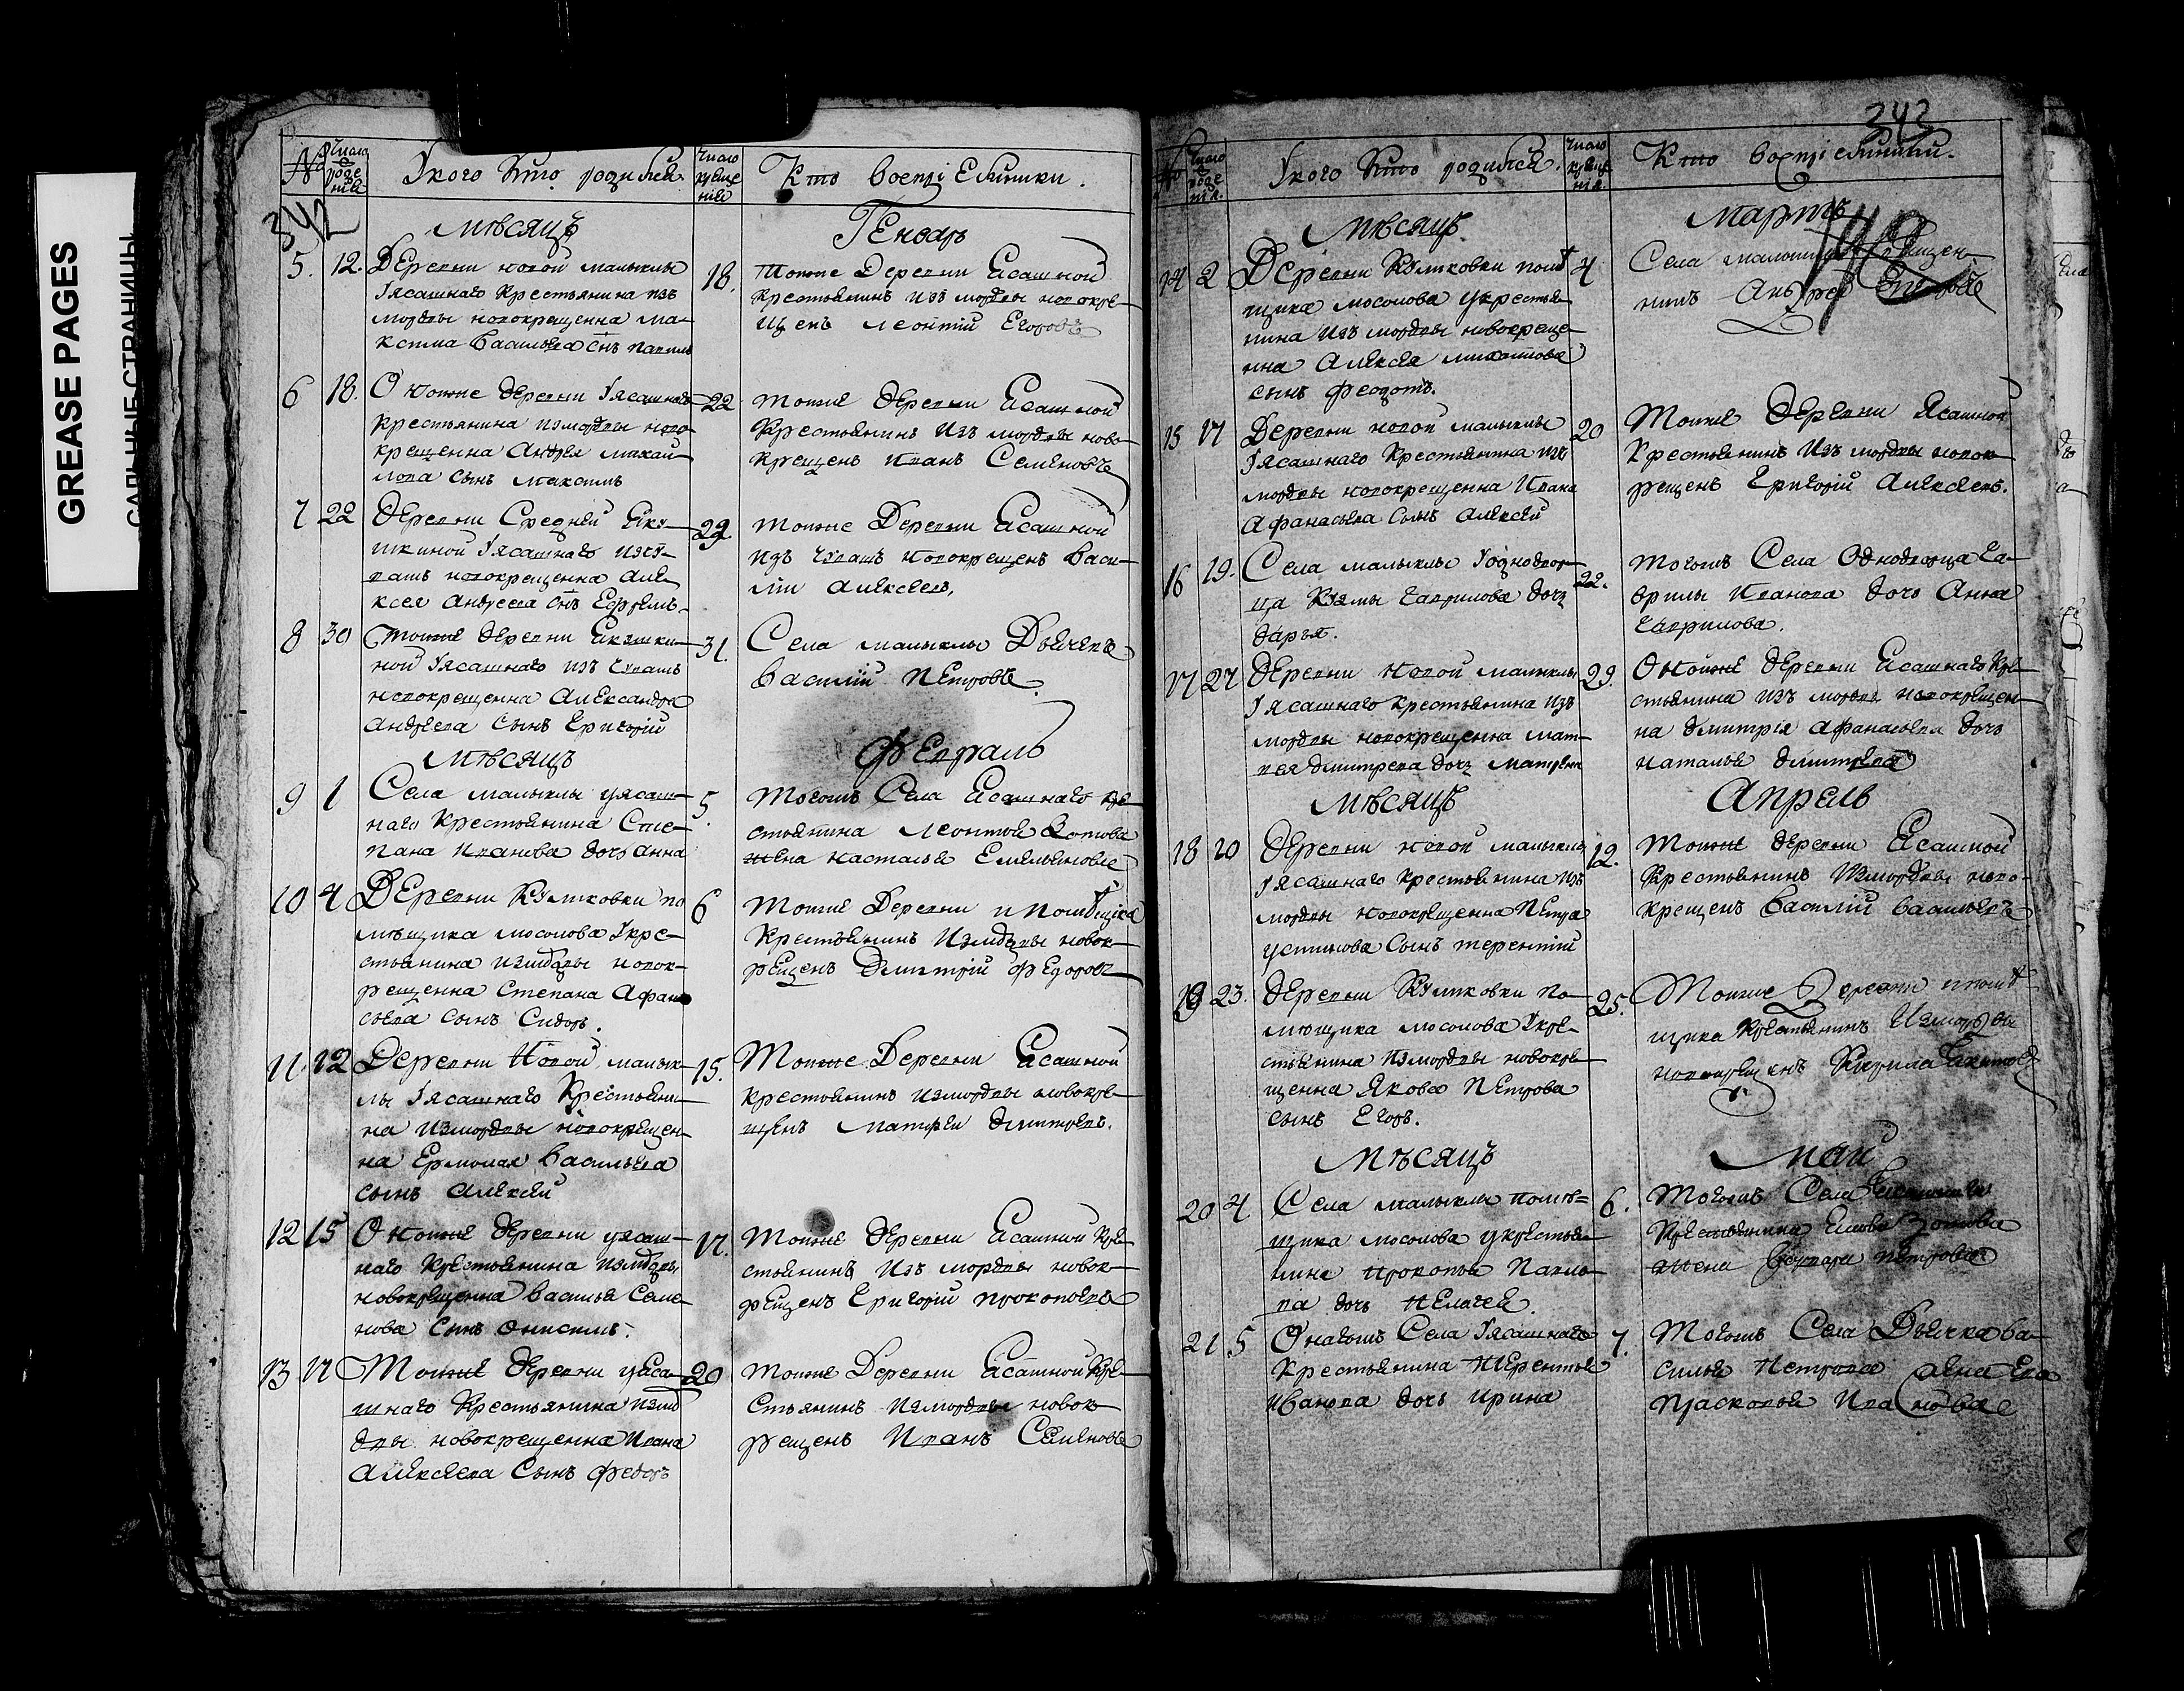 GREASE PAGES
САЛЬНЫЕ СТРАНИЦЫ
№
число рожде нiя
У кого кто родился.
число креще нiя
Кто восприемники.
342
Мѣсяцъ
Генварь
5. 12. Деревни новой малыклы
уясашнаго крестьянина изъ
мордвы новокрещенна ма-
ксима васильева снъ павелъ
18. Тоиже деревни Ясашной
крестьянинъ изъ мордвы новокре-
щенъ леонтiй Егоровъ
6 18. Оноиже деревни уясашнаго
крестьянина измордвы ново-
крещенна Андрея михаи-
лова сынъ максимъ
22 тоиже деревни Ясашной
крестьянинъ изъ мордвы ново-
крещенъ иванъ Семеновъ
7 22 деревни Средней
шкиной уясашнаго изчу-
вашъ новокрещенна але-
ксея Андреева снъ Ефремъ
29. тоиже Деревни Ясашной
изъ чувашъ новокрещенъ Васи-
лiи алексеевъ,
8 30 тоиже деревни
ной уясашнаго изъ чувашъ
новокрещенна Александра
андреева сынъ Григорiй
31. Села малыклы Дьячекъ
василiй Петровъ.
Мѣсяцъ
Февраль
9 1 Села малыклы уясаш-
наго крестьянина Сте-
пана иванова дочь анна
5. Тогожъ Села Ясашнаго кре-
стьянина леонтья Зотова
жена насталья Емельяновна
10 4 Деревни Куликовки по
мѣщика мосолова укре-
стьянина измордвы новок-
рещенна степана Афана
сьева сынъ Сидоръ.
6 тоиже Деревни и помѣщика
Крестьянинъ измордвы новок-
рещенъ Дмитрiй Федоровъ
11. 12 Деревни Новой малык-
лы уясашнаго Крестьяни-
на измордвы новокрещен-
на Ермолая Васильева
сынъ алексеи
15. Тоиже Деревни Ясашной
крестьянинъ измордвы новокре-
щенъ матвеи дмитревъ.
12 15 Оноиже деревни уясаш-
наго Крестьянина измордвы
новокрещенна василья Семе-
нова сынъ онисимъ.
17. Тоиже деревни Ясашной кре-
стьянинъ изъ мордвы новок-
рещенъ Григорiй прокопьевъ
13 17 Тоиже деревни уяса-
шнаго Крестьянина изм
двы новокрещенна ивана
Алексеева Сынъ федоръ
20 тоиже Деревни Ясашной Кре-
Стьянинъ измордвы новок-
рещенъ Иванъ Семеновъ
343
№
число рожде нiя.
У кого кто родился.
число креще нiя.
Кто восприемники.
Мѣсяцъ
Мартъ
14 2 Деревни Куликовки помѣ
щика мосолова укрестья
нина изъ мордвы новокреще-
нна Алексея михаилова
сынъ феодотъ.
4 Села малыклы Священ-
никъ Андрей
15 17 Деревни новой малыклы
уясашнаго Крестьянина изъ
мордвы новокрещенна Ивана
Афанасьева сынъ алексеи
20 Тоиже деревни Ясашной
Крестьянинъ изъ мордвы новок-
рещенъ Григорiй Алексеевъ.
16 19. Села малыклы уоднодвор-
ца Кузмы гаврилова дочь
дарья.
22. тогожъ Села Однодворца Га-
врилы иванова дочь Анна
гаврилова.
17 27 деревни новой малыклы
уясашнаго крестьянина изъ
мордвы новокрещенна мат-
вея дмитрева дочь матрена
29. Оноиже деревни Ясашнаго кре-
стьянина изъ мордвы новокрещен-
на дмитрiя афанасьева дочь
наталья дмитрева
Мѣсяцъ
Апрель
18 10 Деревни новой малыклы
уясашнаго крестьянина изъ
мордвы новокрещенна Петра
устинова Сынъ терентiй
12. тоиже деревни Ясашной
Крестьянинъ Измордвы ново-
крещенъ василiй васильевъ
19 23. Деревни Куликовки по-
мѣщика мосолова укре-
стьянина измордвы новокре-
щенна Якова Петрова
сынъ Егоръ.
25. Тоиже Деревни и помѣ
щика крестьянинъ Измордвы
новокрещенъ Кирила
Мѣсяцъ
Май
20 4 Села малыклы помѣ-
щика мосолова укрестья-
нина прокопья павло-
ва дочь Пелагея.
6. Тогожъ Села Ясашнаго
Крестьянина Зотова
жена Петрова
21. 5 Онагожъ Села уясашнаго
Крестьянина терентья
иванова дочь ирина
7. Тогожъ Села Дьячка Ва-
силья Петрова жена Ева
Прасковья Ивановна